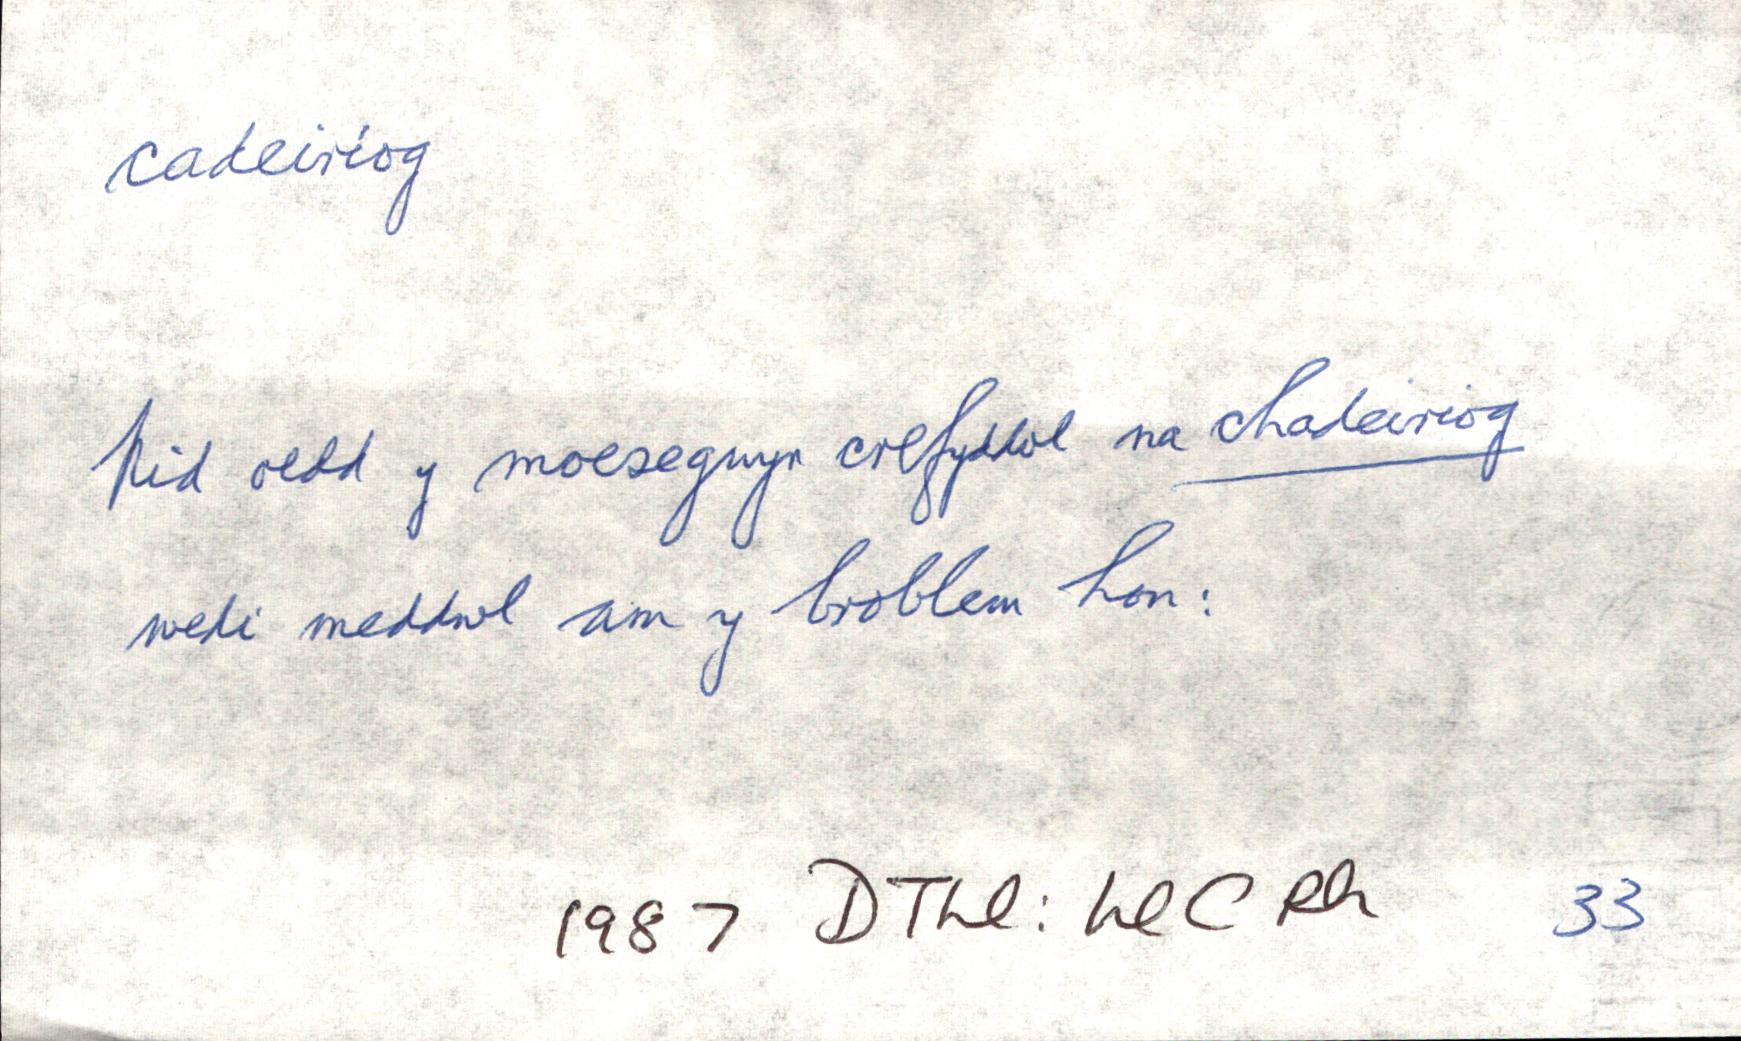 cadeiriog
Nid oedd y moesegwyr crefyddol na chadeiriog
wedi meddwl am y broblem hon:
1987 DThl: HlCRh 33